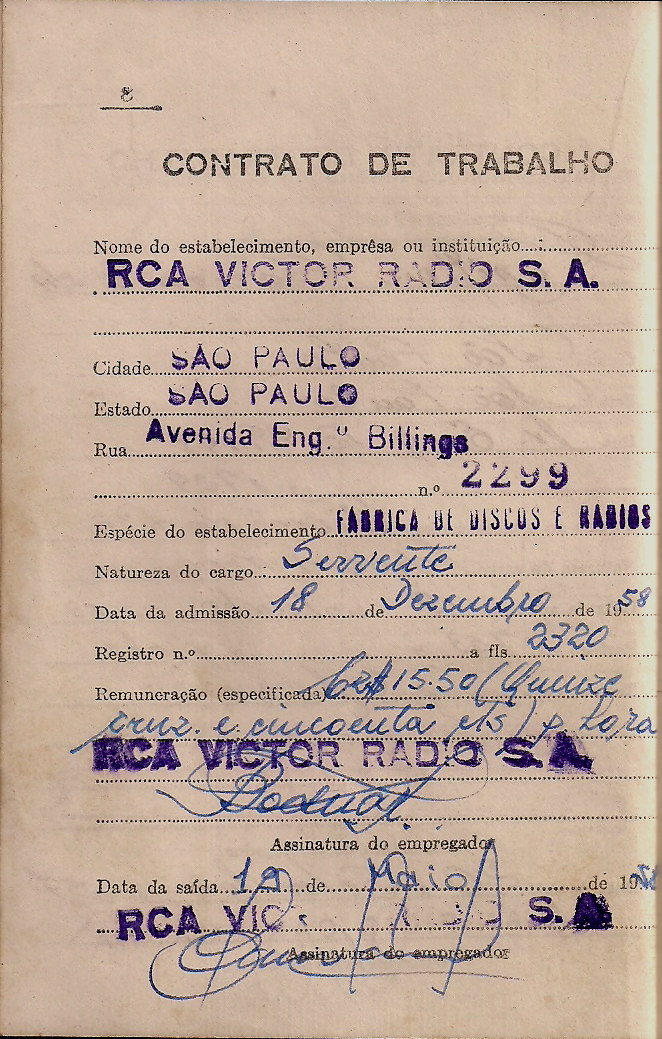 8
CONTRATO DE TRABALHO
Nome do estabelecimento, emprêsa ou instituição
RCA VICTOR RADIO S. A.
Cidade SÃO PAULO
Estado SÃO PAULO
Rua Avenida Eng.º Billings
n.º 2299
Espécie do estabelecimento FÁBRICA DE DISCOS E RADIOS
Natureza do cargo Servente
Data da admissão 18 de Dezembro de 1958
Registro n.º a fls 2320
Remuneração (especificada) Cr$ 15.50 (Quinze
cruz. e cincoenta cts) p. hora
RCA VICTOR RADIO S. A.
Assinatura do empregador
Data da saída 12 de Maio de 19
RCA VIC RADIO S. A.
Assinatura do empregador